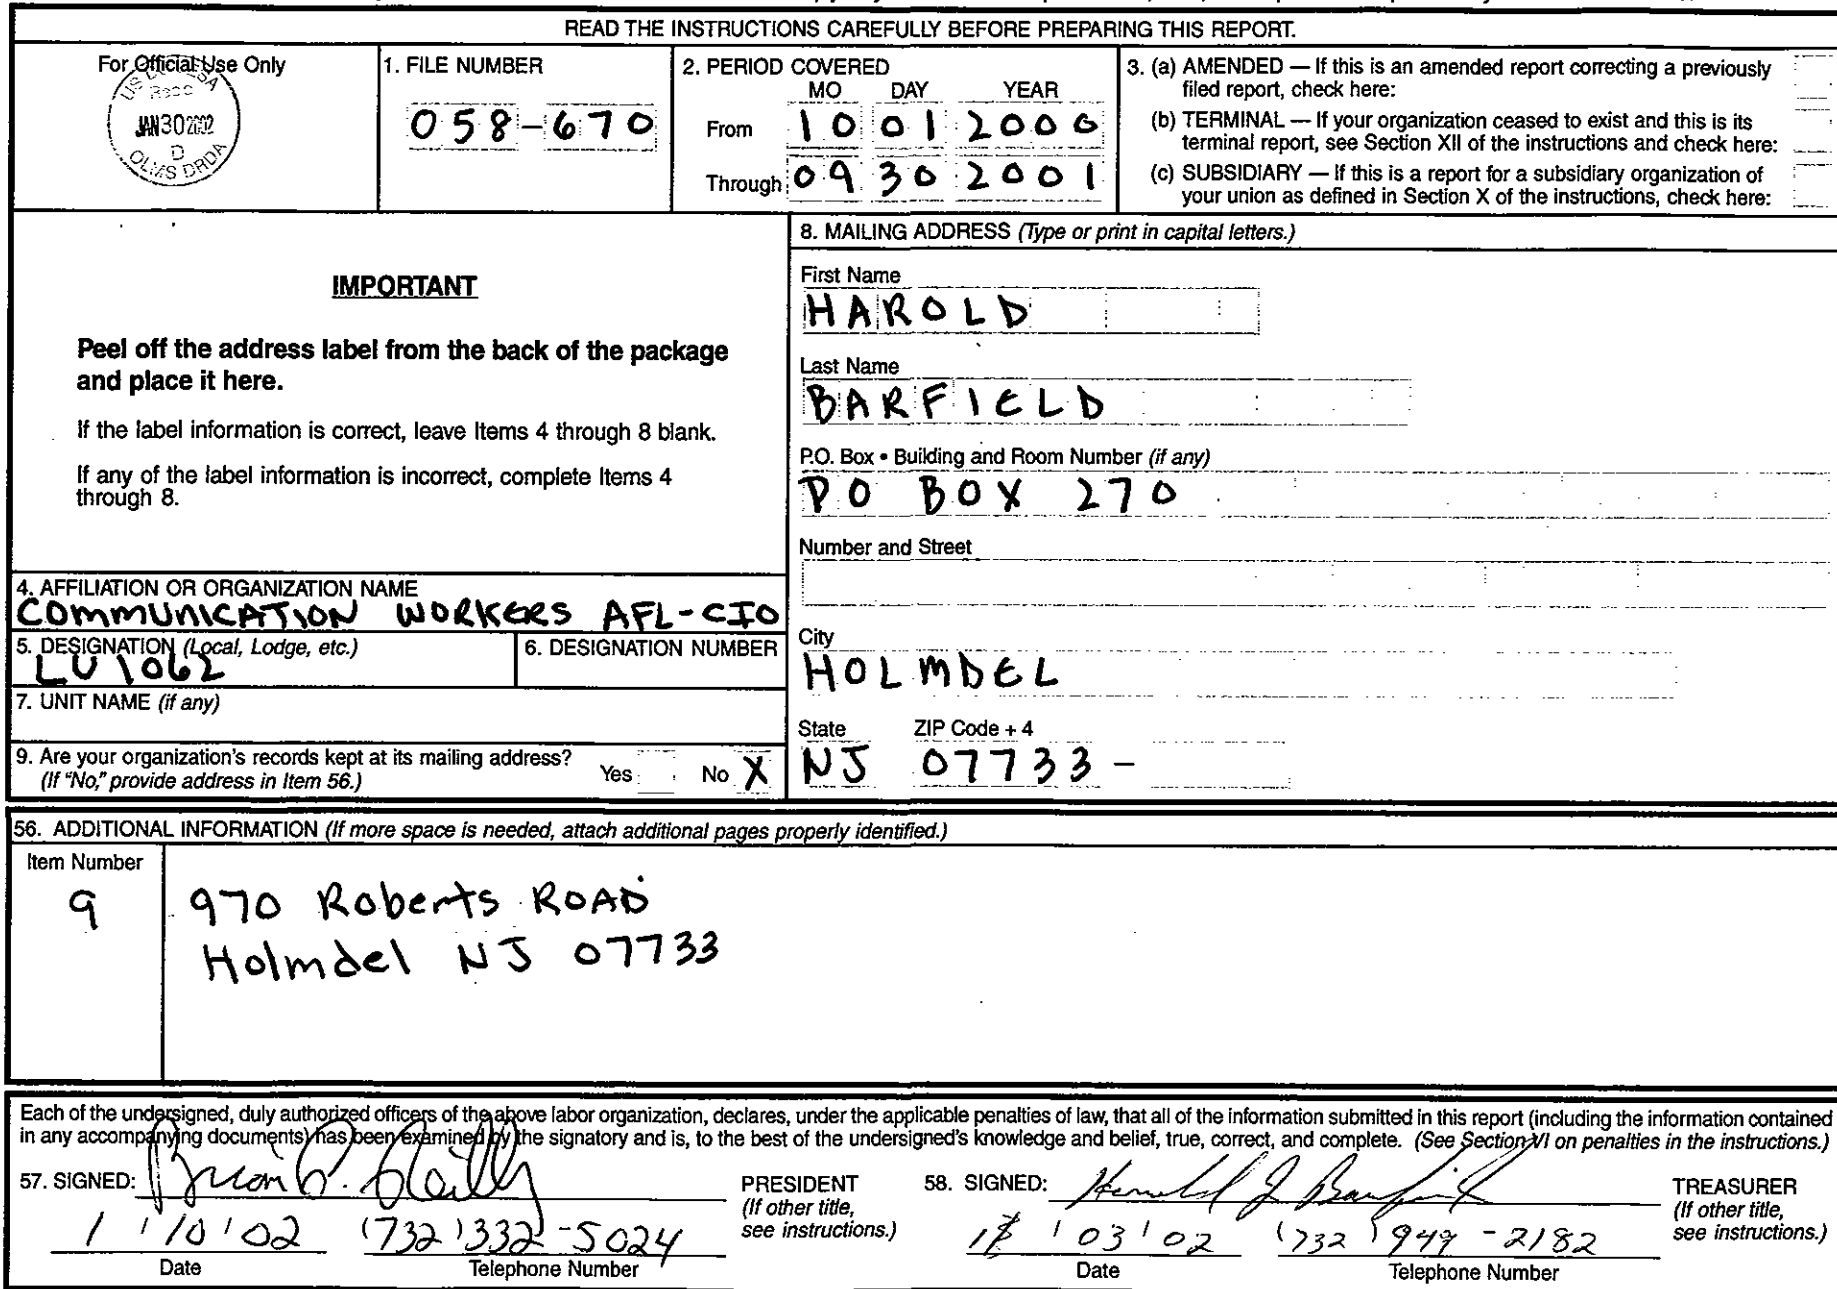 READ THE INSTRUCTIONS CAREFULLY BEFORE PREPARING THIS REPORT.
For Official Use Only
JAN 30 2002
D
OLMS DRDA
1. FILE NUMBER
058-670
2. PERIOD COVERED
MO DAY YEAR
From 10 01 2000
Through 09 30 2001
3. (a) AMENDED — If this is an amended report correcting a previously
filed report, check here:
(b) TERMINAL — If your organization ceased to exist and this is its
terminal report, see Section XII of the instructions and check here:
(c) SUBSIDIARY — If this is a report for a subsidiary organization of
your union as defined in Section X of the instructions, check here:
IMPORTANT
Peel off the address label from the back of the package
and place it here.
If the label information is correct, leave Items 4 through 8 blank.
If any of the label information is incorrect, complete Items 4
through 8.
4. AFFILIATION OR ORGANIZATION NAME
COMMUNICATION WORKERS AFL-CIO
5. DESIGNATION (Local, Lodge, etc.)
LU 1062
6. DESIGNATION NUMBER
7. UNIT NAME (if any)
9. Are your organization's records kept at its mailing address?
(If "No," provide address in Item 56.)
Yes No X
8. MAILING ADDRESS (Type or print in capital letters.)
First Name
HAROLD
Last Name
BARFIELD
P.O. Box • Building and Room Number (if any)
PO BOX 270
Number and Street
City
HOLMDEL
State ZIP Code + 4
NJ 07733 -
56. ADDITIONAL INFORMATION (If more space is needed, attach additional pages properly identified.)
Item Number
9 970 Roberts ROAD
Holmdel NJ 07733
Each of the undersigned, duly authorized officers of the above labor organization, declares, under the applicable penalties of law, that all of the information submitted in this report (including the information contained
in any accompanying documents) has been examined by the signatory and is, to the best of the undersigned's knowledge and belief, true, correct, and complete. (See Section VI on penalties in the instructions.)
57. SIGNED: Brian P. Reilly
PRESIDENT
(If other title,
see instructions.)
1/10/02 (732)332-5024
Date Telephone Number
58. SIGNED: Harold J Barfield
TREASURER
(If other title,
see instructions.)
03/02 (732)949-2182
Date Telephone Number